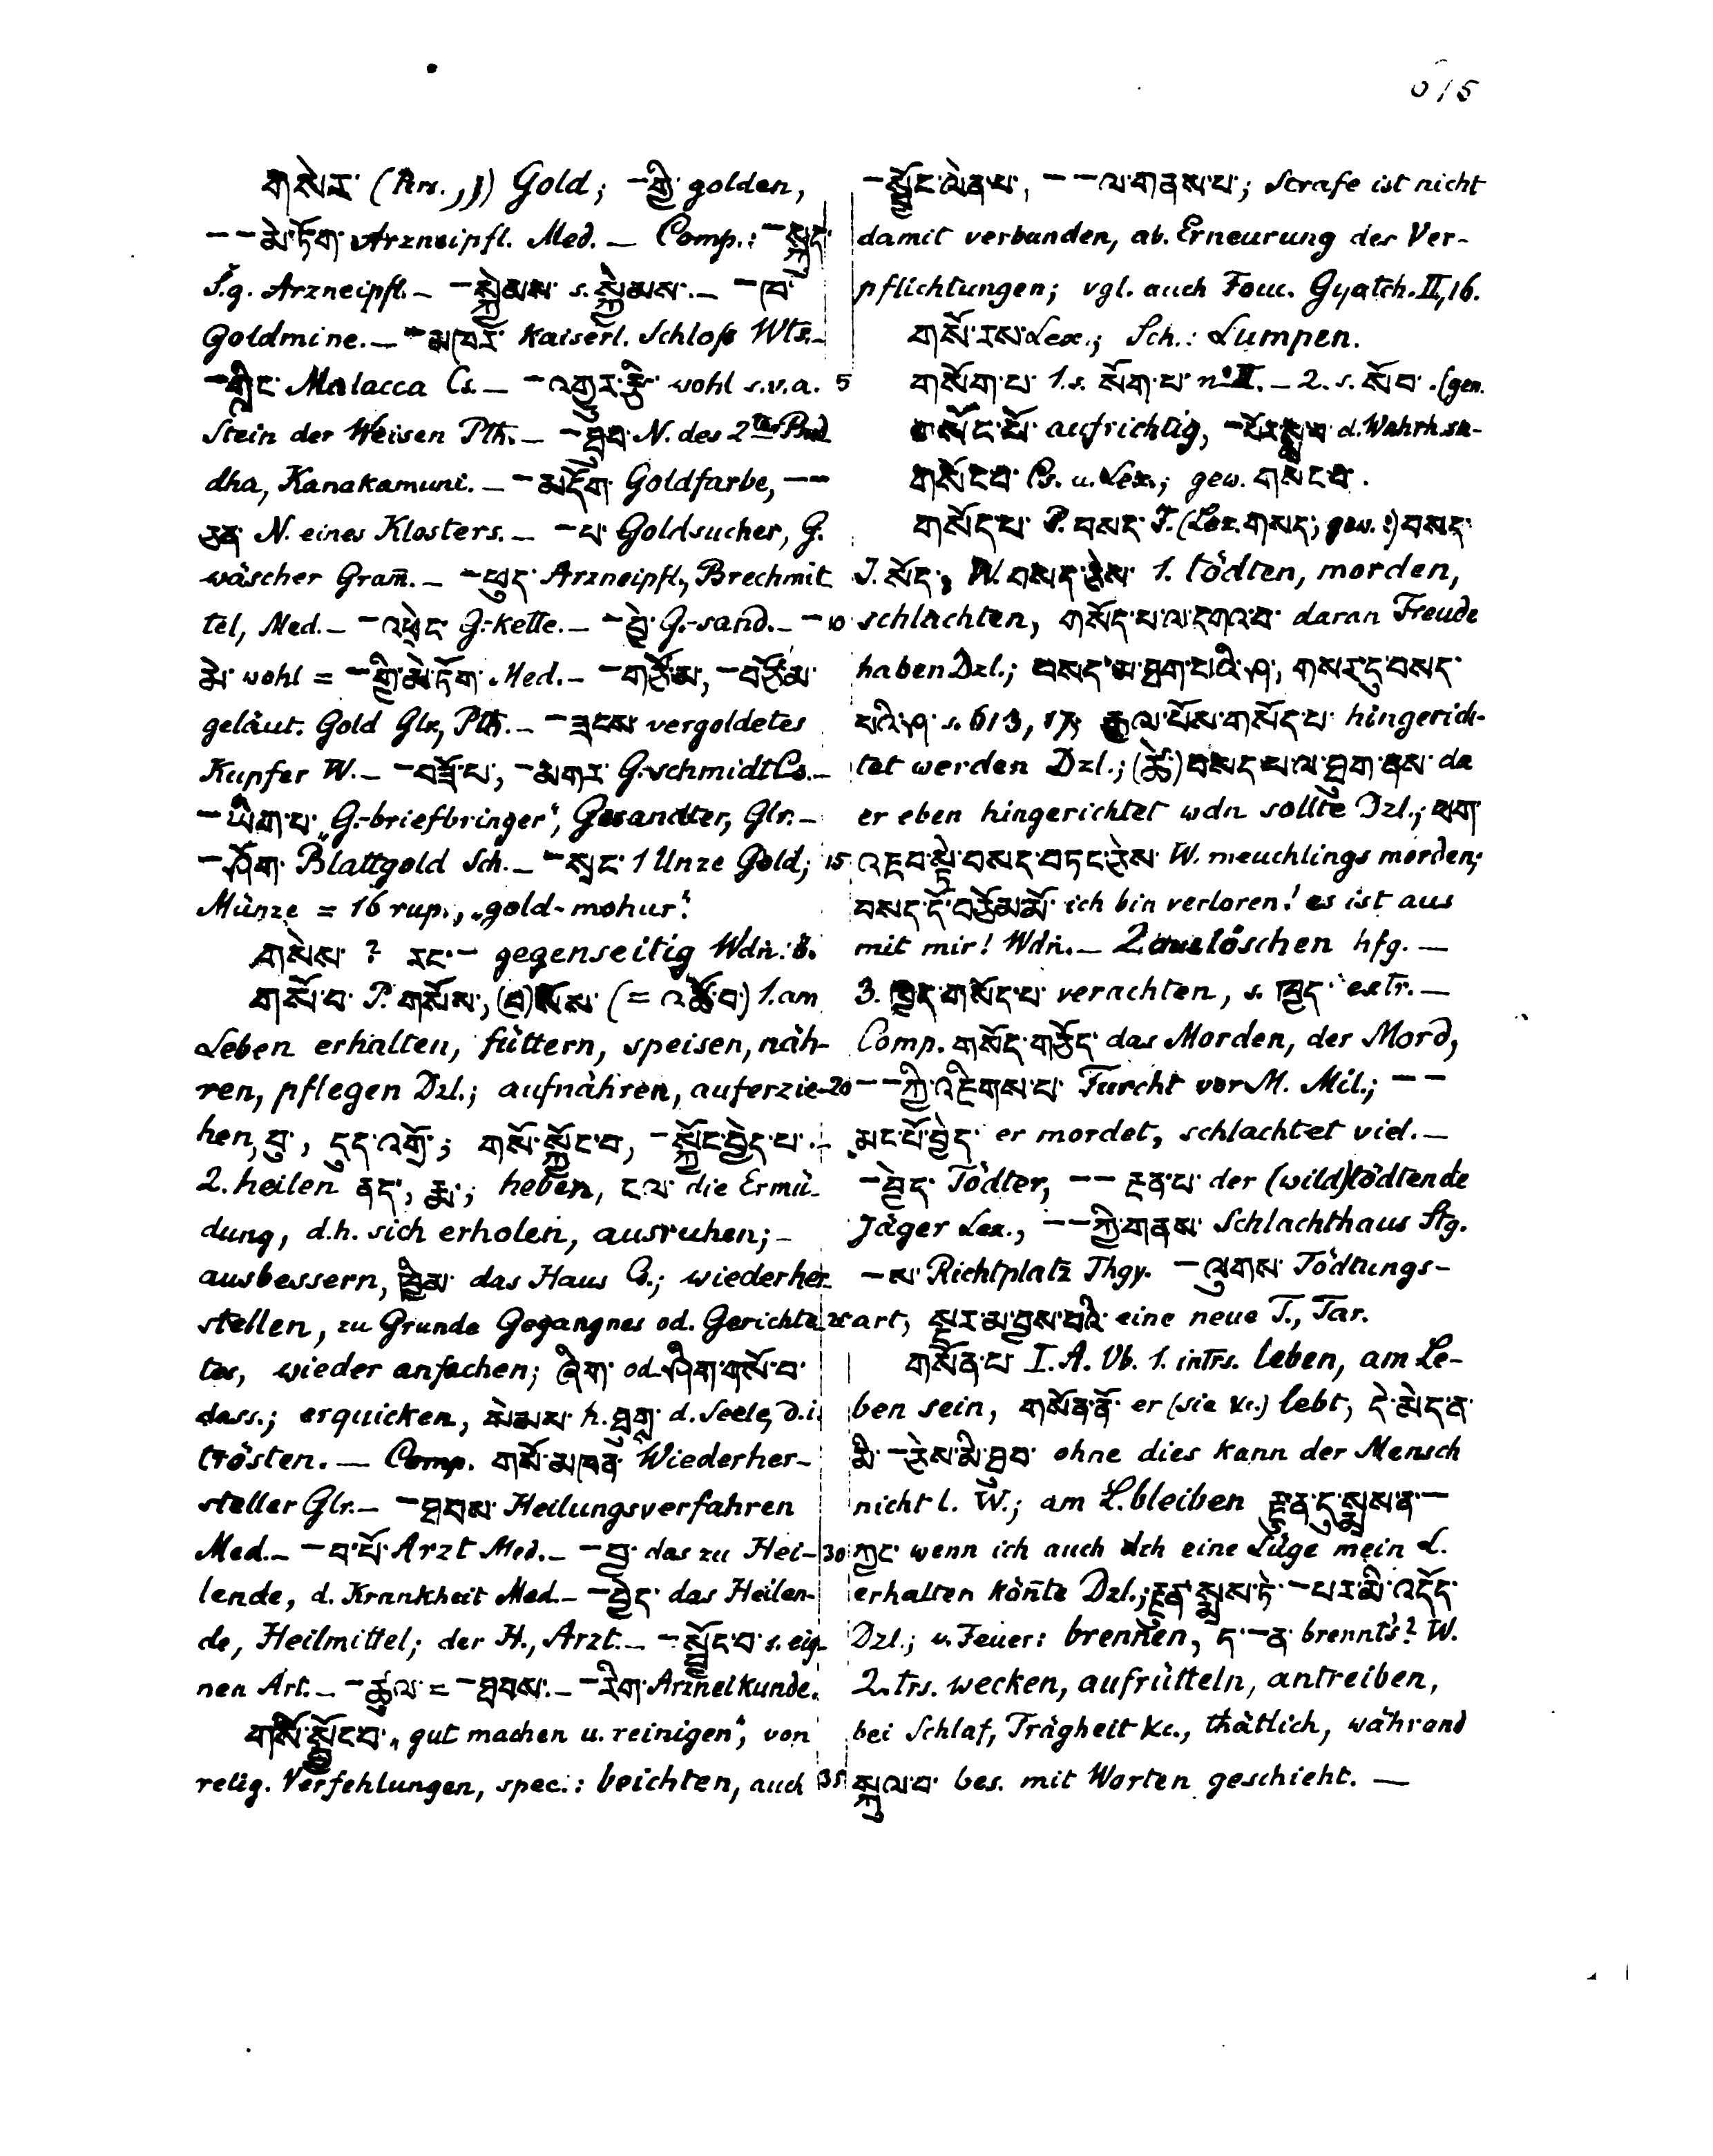 615
གསེར་ (Prs. زر) Gold; –གྱི་ golden,
– –མེ་ཏོག་ Arzneipfl. Med. – Comp.: –སྐུད་
S.g. Arzneipfl. – –སྐྱེམས་ s. སྐྱེམས་. – –ཁ་
Goldmine. – –མཁར་ Kaiserl. Schloß Wts. –
–གླིང་ Malacca Cs. – –འགྱུར་རྩི་ wohl s.v.a.
Stein der Weisen Pth. – –ཐུབ་ N. des 2ten Bud
dha, Kanakamuni. – –མདོག་ Goldfarbe, – –
ཅན་ N. eines Klosters. – –པ་ Goldsucher, G.
wäscher Gram̄. – –ཕུད་ Arzneipfl., Brechmit
tel, Med. – –འཕྲེང་ G.-kette. – –བྱེ་ G.-sand. – –
མེ་ wohl = –གྱི་མེ་ཏོག་ Med. – –གཙོ་མ་, –བཙོ་མ་
geläut. Gold Glr., Pth. – –ཟངས་ vergoldetes
Kupfer W. – –བཟོ་པ་, –མགར་ G.-schmidt Cs. –
–ཡིག་པ་ „G.-briefbringer“, Gesandter, Glr. –
–ཤོག་ Blattgold Sch. – –སྲང་ 1 Unze Gold;
Münze = 16 rup., „gold-mohur“.
གསེས་ ? རང་– gegenseitig Wdn.
གསོ་བ་ P. གསོས་, (བ)སོས་ (= འཚོ་བ་) 1. am
Leben erhalten, füttern, speisen, näh-
ren, pflegen Dzl.; aufnähren, auferzie-
hen, བུ་, དུད་འགྲོ་; གསོ་སྐྱོང་བ་, –སྐྱོང་བྱེད་པ་. –
2. heilen ནད་, རྨ་; heben, ངལ་ die Ermü-
dung, d.h. sich erholen, ausruhen; –
ausbessern, ཁྱིམ་ das Haus Cs.; wiederher-
stellen, zu Grunde Gegangnes od. Gerichte-
tes, wieder anfachen; ཞིག་ od. ཤིག་གསོ་བ་
dass.; erquicken, སེམས་ h. ཐུགས་ d. Seele, d.i.
trösten. – Comp. གསོ་མཁན་ Wiederher-
steller Glr. – –ཐབས་ Heilungsverfahren
Med. – –བ་པོ་ Arzt Med. – –བྱ་ das zu Hei-
lende, d. Krankheit Med. – –བྱེད་ das Heilen-
de, Heilmittel; der H., Arzt. – –སྦྱོང་བ་ s. eig-
nen Art. – –ཚུལ་ = –ཐབས་. – –རིག་ Arzneikunde.
གསོ་སྦྱོང་བ་ „gut machen u. reinigen“, von
relig. Verfehlungen, spec.: beichten, auch
–སྦྱོང་ལེན་པ་, – –ལ་གནས་པ་; Strafe ist nicht
damit verbunden, ab. Erneurung der Ver-
pflichtungen; vgl. auch Fouc. Gyatch. II, 16.
གསོ་རས་ Lex.; Sch.: Lumpen.
5 གསོག་པ་ 1. s. སོག་པ་ no II. – 2. s. སོབ་. (gen.
གསོང་པོ་ aufrichtig, –པོར་སྨྲ་བ་ d. Wahrh. sa-
གསོང་བ་ Cs. u. Lex.; gew. གསང་བ་.
གསོད་པ་ P. བསད་ F. (Lex. གསད་; gew.:) བསད་
I. སོད་, W. བསད་ཅེས་ 1. tödten, morden,
10 schlachten, གསོད་པ་ལ་དགའ་བ་ daran Freude
haben Dzl.; བསད་མ་ཐག་པའི་ཤ་, གསར་དུ་བསད་
པའི་ཤ་ s. 613, 17; རྒྱལ་པོས་གསོད་པ་ hingerich-
tet werden Dzl.; (ཚེ་) བསད་པ་ལ་ཐུག་ནས་ da
er eben hingerichtet wdn sollte Dzl.; ལག་
15 འཇབ་སྟེ་བསད་བཏང་ཅེས་ W. meuchlings morden;
བསད་དོ་བཅོམ་མོ་ ich bin verloren! es ist aus
mit mir! Wdn. – 2. auslöschen hfg. –
3. ཁྱད་གསོད་པ་ verachten, s. ཁྱད་ extr. –
Comp. གསོད་གཅོད་ das Morden, der Mord,
20 – –ཀྱི་འཇིགས་པ་ Furcht vor M. Mil.; – –
མང་པོ་བྱེད་ er mordet, schlachtet viel. –
–བྱེད་ Tödter, – –རྔོན་པ་ der (wild)tödtende
Jäger Lex., – –ཀྱི་གནས་ Schlachthaus Stg.
–ས་ Richtplatz Thgy. –ལུགས་ Tödtungs-
25 art, སྔར་མ་བྱས་པའི་ eine neue T., Tar.
གསོན་པ་ I. A. Vb. 1. intrs. leben, am Le-
ben sein, གསོན་ནོ་ er (sie &c.) lebt, དེ་མེད་ན་
མི་ –ཅེས་མི་ཐུབ་ ohne dies kann der Mensch
nicht l. W.; am L. bleiben རྫུན་དུ་སྨྲས་ན་–
30 ཀྱང་ wenn ich auch dch eine Lüge mein L.
erhalten kön̄te Dzl.; རྫུན་སྨྲས་ཏེ་–པར་མི་འདོད་
Dzl.; v. Feuer: brennen, ད་–ན་ brennt's? W.
2. trs. wecken, aufrütteln, antreiben,
bei Schlaf, Trägheit &c., thätlich, während
35 སྐུལ་བ་ bes. mit Worten geschieht. –